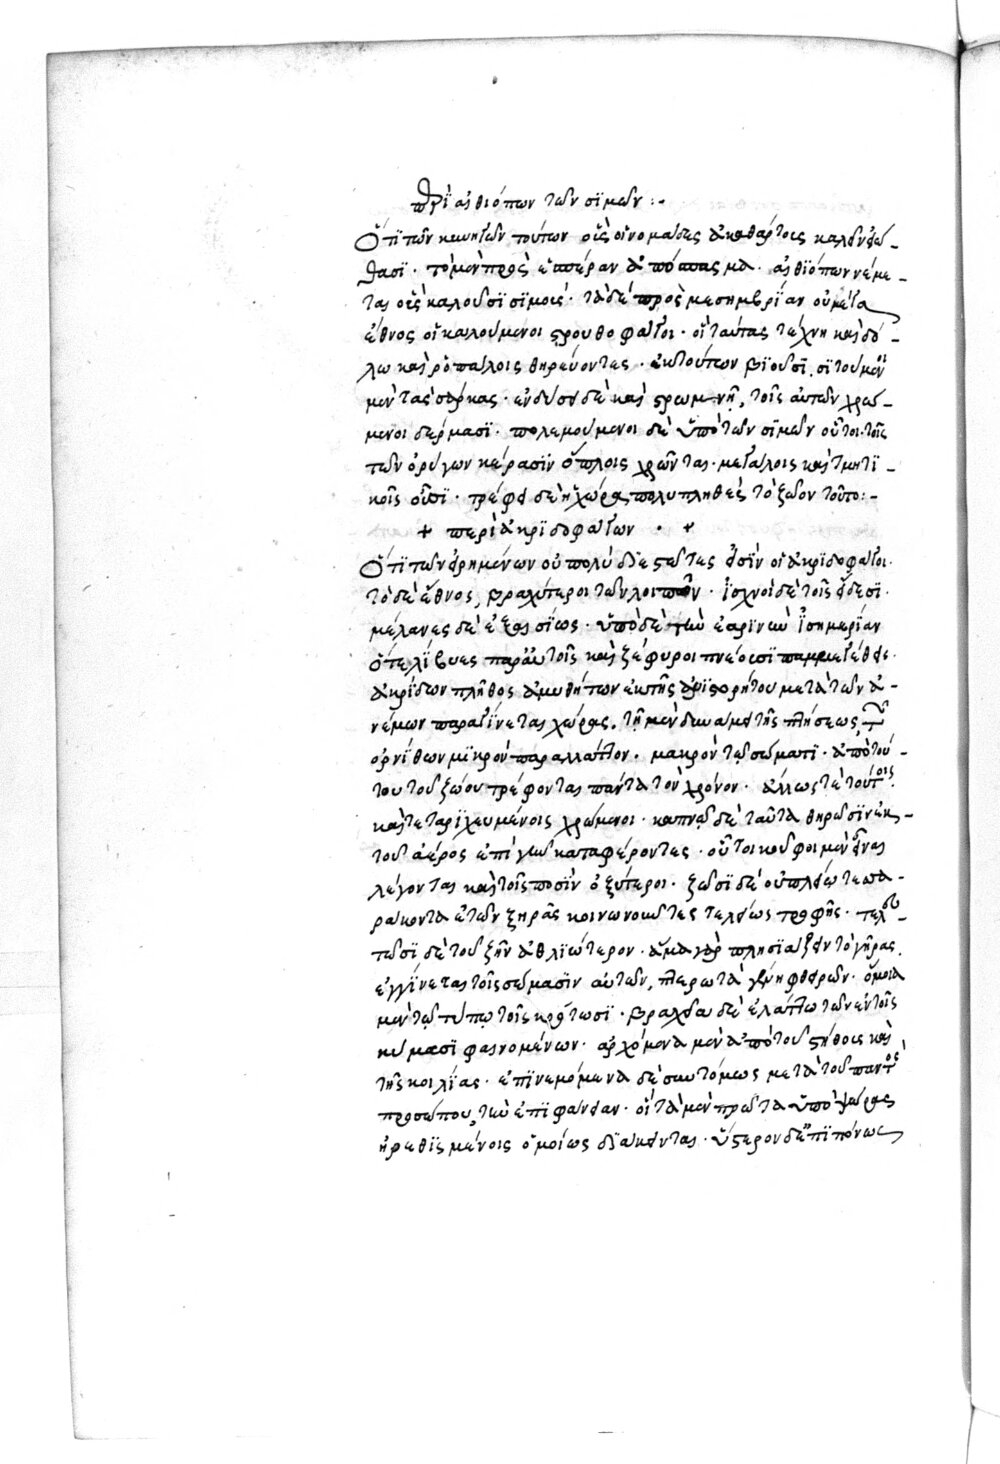 περὶ αἰθιόπων τῶν σιμῶν :-
Ὅτι τῶν κυνητῶν τούτων οὓς ὀνομάζει ἀκαθάρτους καλὸν ἐῶ-
θασι · τὸ μὲν πρὸς ἑσπέραν ἀπόσπασμα · αἰθιόπων νέμε-
ται οὓς καλοῦσι σιμούς · τὸ δὲ πρὸς μεσημβρίαν οὐ μέγα
ἔθνος οἱ καλούμενοι στρουθοφάγοι · οἳ ταύτας τέχνῃ καὶ δό-
λῳ καὶ ῥοπάλοις θηρεύοντες · ἐκ τούτων βιοῦσι, σιτούμενοι
μὲν τὰς σάρκας · ἐνδύσει δὲ καὶ στρωμνῇ, τοῖς αὐτῶν χρώ-
μενοι δέρμασι · πολεμούμενοι δὲ ὑπὸ τῶν σιμῶν οὗτοι τοῖς
τῶν ὀρύγων κέρασιν ὅπλοις χρῶνται · μεγάλοις καὶ τμητι-
κοῖς οὖσι · τρέφει δὲ ἡ χώρα πολυπληθὲς τὸ ζῶον τοῦτο :-
+ περὶ ἀκριδοφάγων · +
Ὅτι τῶν εἰρημένων οὐ πολὺ διεστῶτες εἰσὶν οἱ ἀκριδοφάγοι ·
τὸ δὲ ἔθνος, βραχύτεροι τῶν λοιπῶν · ἰσχνοὶ δὲ τοῖς εἴδεσι ·
μέλανες δὲ ἐξαισίως · ὑπὸ δὲ τὴν ἐαρινὴν ἰσημερίαν
ὅτε λίβες παρ' αὐτοῖς καὶ ζέφυροι πνέουσι παμμεγέθεις ·
ἀκρίδων πλῆθος ἀμυθήτων ἐκ τῆς ἀνιστορήτου μετὰ τῶν ἀ-
νέμων παραγίνεται χώρας · τῇ μὲν δυνάμει τῆς πτήσεως, τῶν
ὀρνίθων μικρὸν παραλλάττον · μακρὸν τῷ σώματι · ἀπὸ τού-
του τοῦ ζώου τρέφονται πάντα τὸν χρόνον · ἄλλως τε τούτοις
καὶ τεταριχευμένοις χρώμενοι · καπνῷ δὲ ταῦτα θηρῶσιν ἐκ
τοῦ ἀέρος ἐπὶ γῆν καταφέροντες · οὗτοι κοῦφοι μὲν εἶναι
λέγονται καὶ τοῖς ποσὶν ὀξύτεροι · ζῶσι δὲ οὐ πλείω τεσσα-
ράκοντα ἐτῶν ξηρᾶς κοινωνοῦντες τελείως τροφῆς · τελευ-
τῶσι δὲ τοῦ ζῆν ἀθλιώτερον · ἅμα γὰρ πλησιάζειν τὸ γῆρας,
ἐγγίνεται τοῖς σώμασιν αὐτῶν, πτερωτὰ γένη φθειρῶν · ὅμοια
μὲν τῷ τύπῳ τοῖς κρότωσι · βραχεῖ δὲ ἐλάττω τῶν ἐν τοῖς
κυσὶ φαινομένων · ἀρχόμενα μὲν ἀπὸ τοῦ στήθους καὶ
τῆς κοιλίας · ἐπινεμόμενα δὲ συντόμως μετὰ τοῦ παντὸς
προσώπου, τὴν ἐπιφάνειαν · οἳ τὰ μὲν πρῶτα ὑπὸ ψώρας
ἠρεθισμένοις ὁμοίως διάκεινται · ὕστερον δὲ ἐπιπόνως